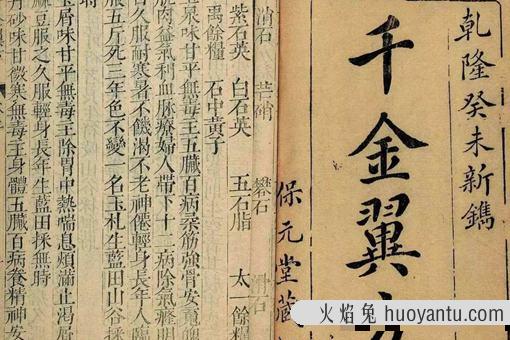 乾隆癸未新鐫
千金翼方
保元堂藏
消石 芒硝 礬石 滑石
紫石英 白石英 玉石脂 太一餘糧
禹餘糧 石中黃子
玉泉味甘平無毒主五臟百病柔筋強骨安魂
肌肉益氣利血脈療婦人帶下十二病除氣癃明
久服耐寒暑不饑渴不老神僊輕身長年人臨
服五斤死三年色不變一名玉札生藍田山谷採
玉屑味甘平無毒主除胃中熱喘息煩滿止渴屑
麻豆服之久服輕身長年生藍田採無時
丹砂味甘微寒無毒主身體五臟百病養精神安
火焰兔 huoyantu.com